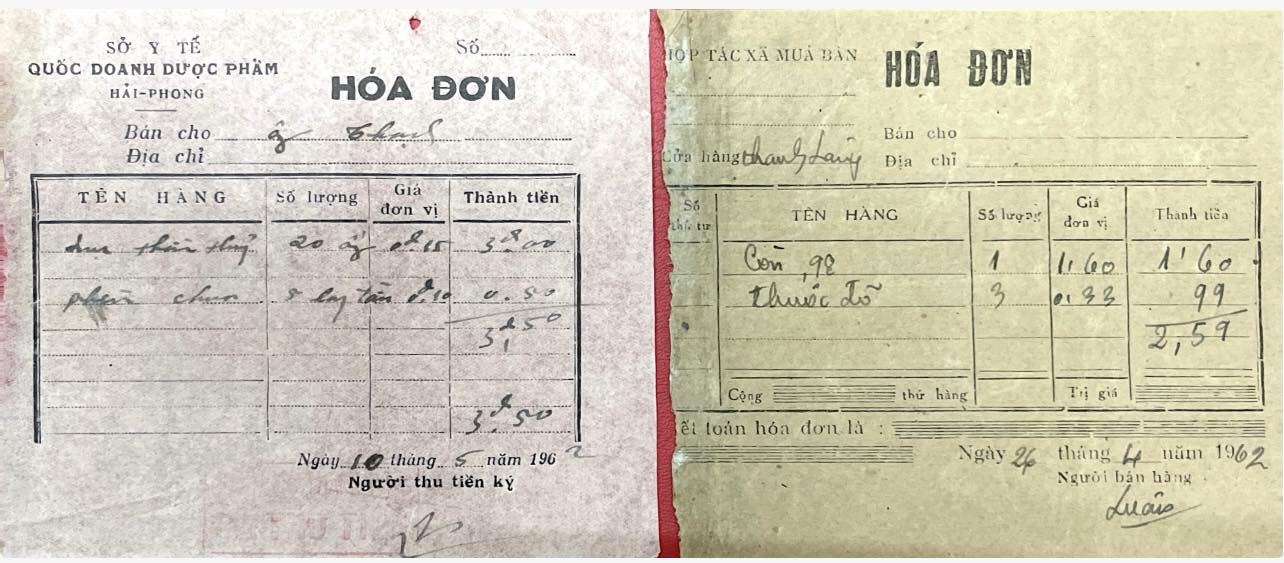 SỞ Y TẾ
QUỐC DOANH DƯỢC PHẨM
HẢI-PHONG
Số
HÓA ĐƠN
Bán cho ô
Địa chỉ
TÊN HÀNG Số lượng Giá đơn vị Thành tiền
20 ô 0đ15 3đ00
5 0đ.10 0.50
3đ50
3đ50
Ngày 10 tháng 5 năm 1962
Người thu tiền ký
HỢP TÁC XÃ MUA BÁN
HÓA ĐƠN
Bán cho
Cửa hàng Địa chỉ
Số thứ tự TÊN HÀNG Số lượng Giá đơn vị Thành tiền
Cồn, 98 1 1,60 1'60
thuốc đỏ 3 0,33 99
2,59
Cộng thứ hàng Trị giá
ết toán hóa đơn là :
Ngày 26 tháng 4 năm 1962
Người bán hàng